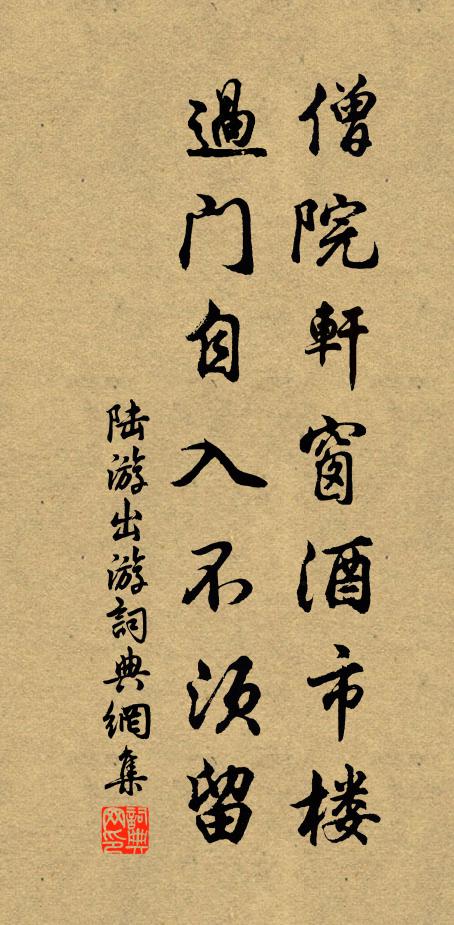 僧院軒窗酒市楼
過门自入不须留
陆游出游詞典網集
詞典网印